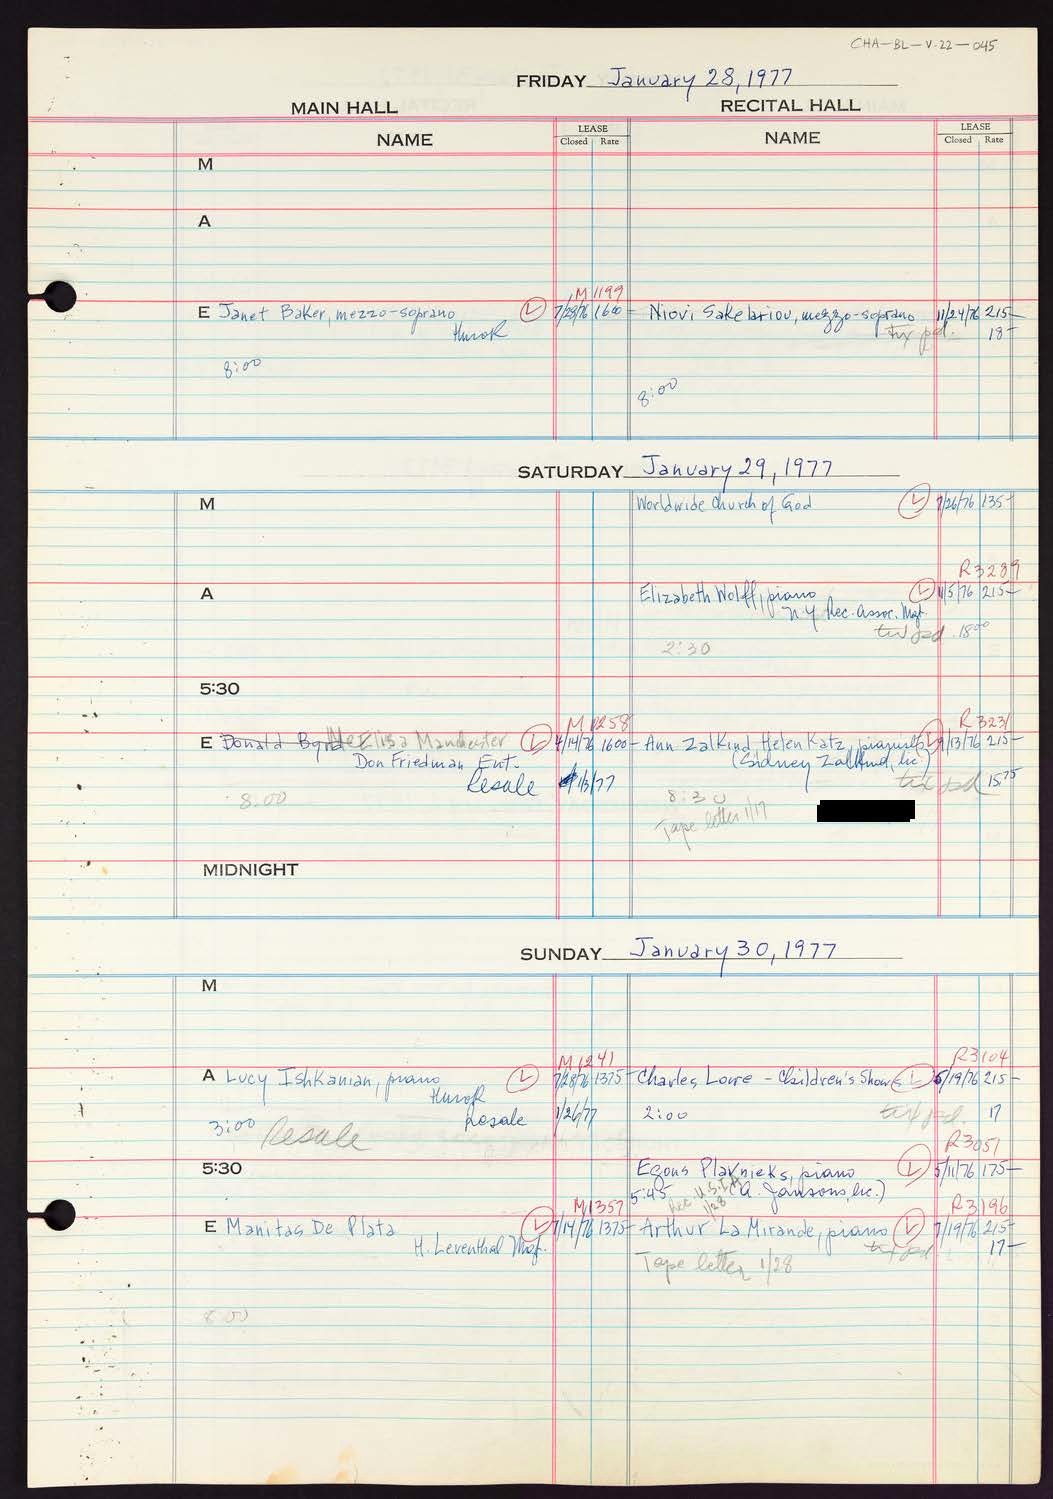 CHA-BL-V.22-045
FRIDAY January 28, 1977
MAIN HALL RECITAL HALL
NAME LEASE Closed Rate NAME LEASE Closed Rate
M
A
M 1199
E Janet Baker, mezzo-soprano L 7/28/76 1600- Niovi Sakelariou, mezzo-soprano 11/24/76 215-
Hurok tix pd. 18-
8:00
8:00
SATURDAY January 29, 1977
M Worldwide Church of God L 7/26/76 135-
R3289
A Elizabeth Wolff, piano L 11/5/76 215-
N.Y. Rec. Assoc. Mgt.
tix pd 18⁰⁰
2:30
5:30
M 1258 R 3231
E Donald Byrd Melissa Manchester L 4/14/76 1600- Ann Zalkind, Helen Katz, pianists L 9/13/76 215-
Don Friedman Ent. (Sidney Zalkind, lic.)
Resale 1/3/77 tix pd 15⁷⁵
8:00 8:30
Tape letter 1/17
MIDNIGHT
SUNDAY January 30, 1977
M
M 1241 R3104
A Lucy Ishkanian, piano L 7/28/76 1375- Charles Lowe - Children's Shows L 5/19/76 215-
Hurok
Resale 1/26/77 2:00 tix pd. 17
3:00 Resale
R3051
5:30 Egons Plaknieks, piano L 5/11/76 175-
5:45 (A. Jansons, lic.)
Rec. U.S.I.A. 1/28
M1357 R3196
E Manitas De Plata L 7/14/76 1375- Arthur La Mirande, piano L 7/19/76 215-
H. Leventhal Mgt. tix pd 17-
Tape letter 1/28
8:00